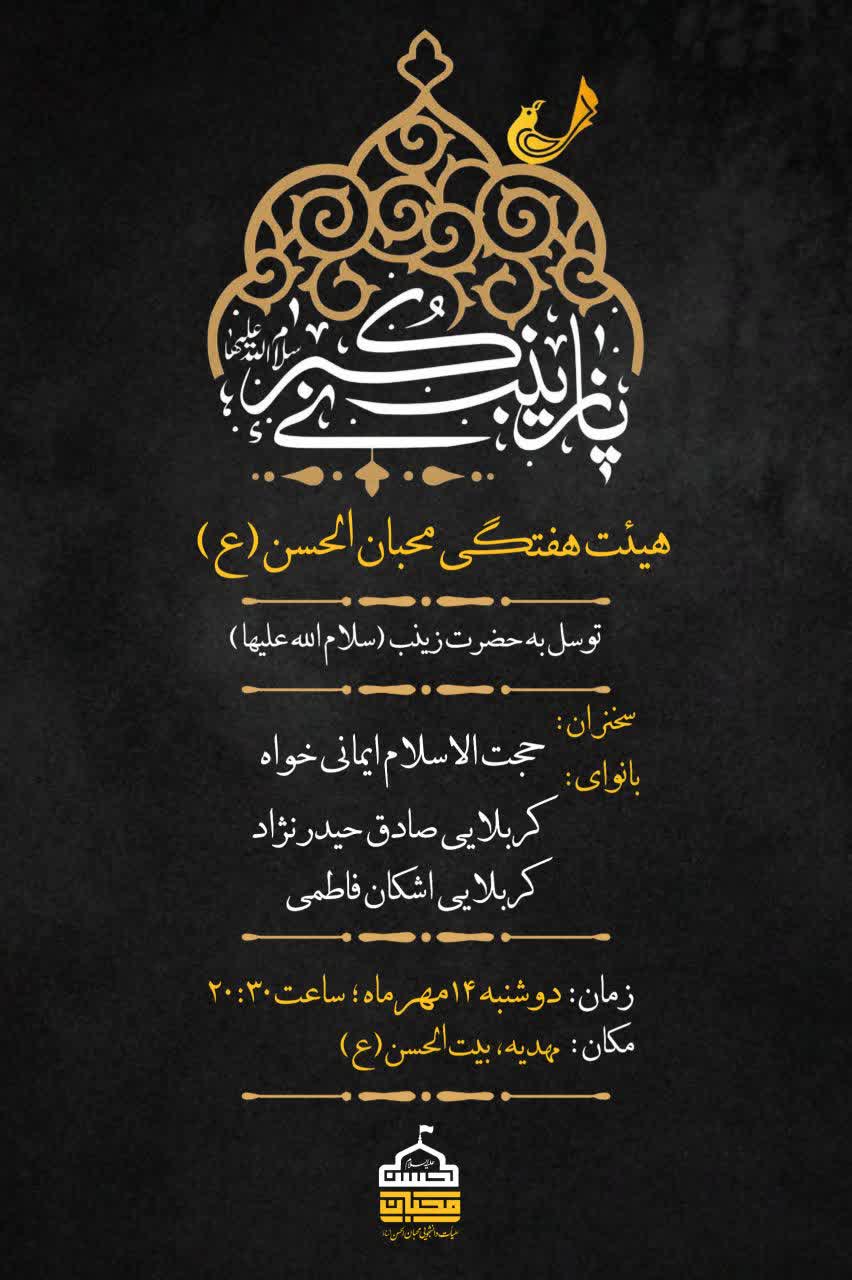 یا زینب کبری
سلام الله علیها
هیئت هفتگی محبان الحسن (ع)
توسل به حضرت زینب (سلام الله علیها)
سخنران:
حجت الاسلام ایمانی خواه
بانوای:
کربلایی صادق حیدرنژاد
کربلایی اشکان فاطمی
زمان: دوشنبه ۱۴ مهر ماه؛ ساعت ۲۰:۳۰
مکان: مهدیه، بیت الحسن (ع)
علیه السلام
الحسن
محبان
هیأت دانشجویی محبان الحسن